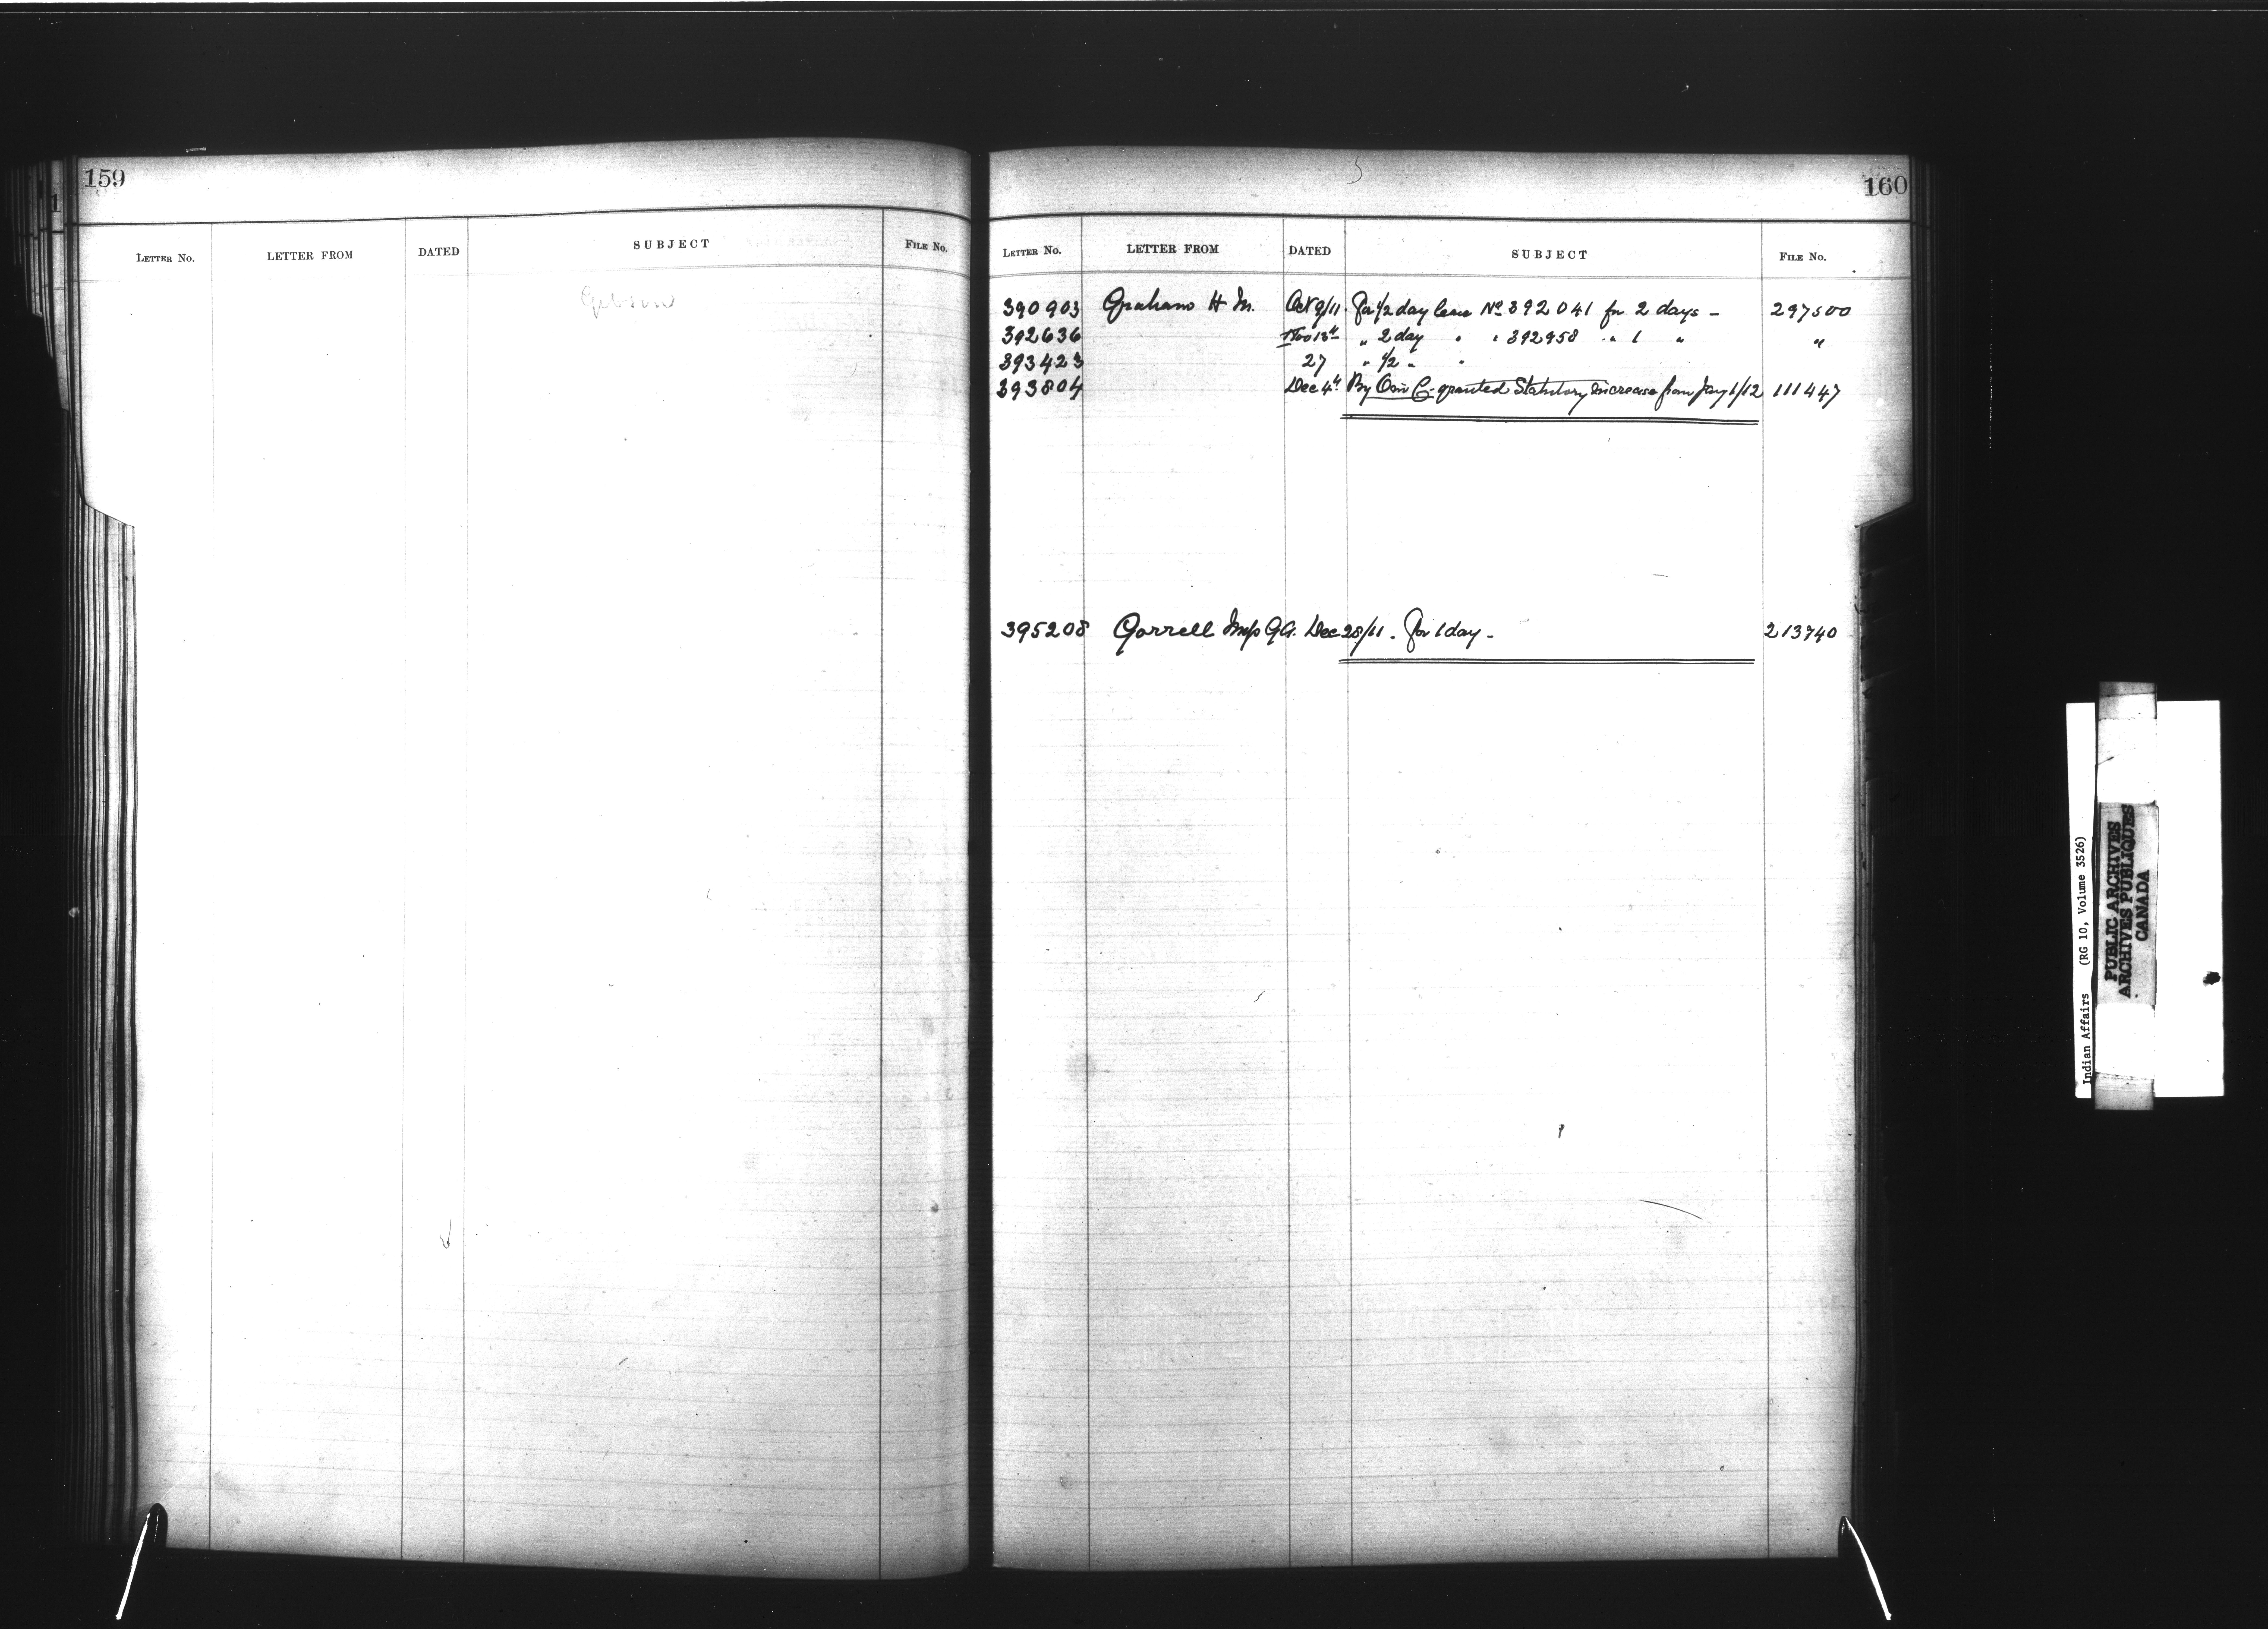 159
LETTER NO. LETTER FROM DATED SUBJECT FILE No.
Gibson
160
LETTER NO. LETTER FROM DATED SUBJECT FILE No.
390903 Graham H M. Oct 9/11. For 1/2 day leave No 392041 for 2 days - 297500
392636 Nov 13th " 2 day " " 392958 " " 1 " "
393423 27 " 1/2 " "
393804 Dec 4th By O in C - granted Statutory Increase from Jany 1/12 111447
395208 Gorrell Miss Dec 28/11. For 1 day - 213740
Indian Affairs (RG 10, Volume 3526)
PUBLIC ARCHIVES
ARCHIVES PUBLIQUES
CANADA